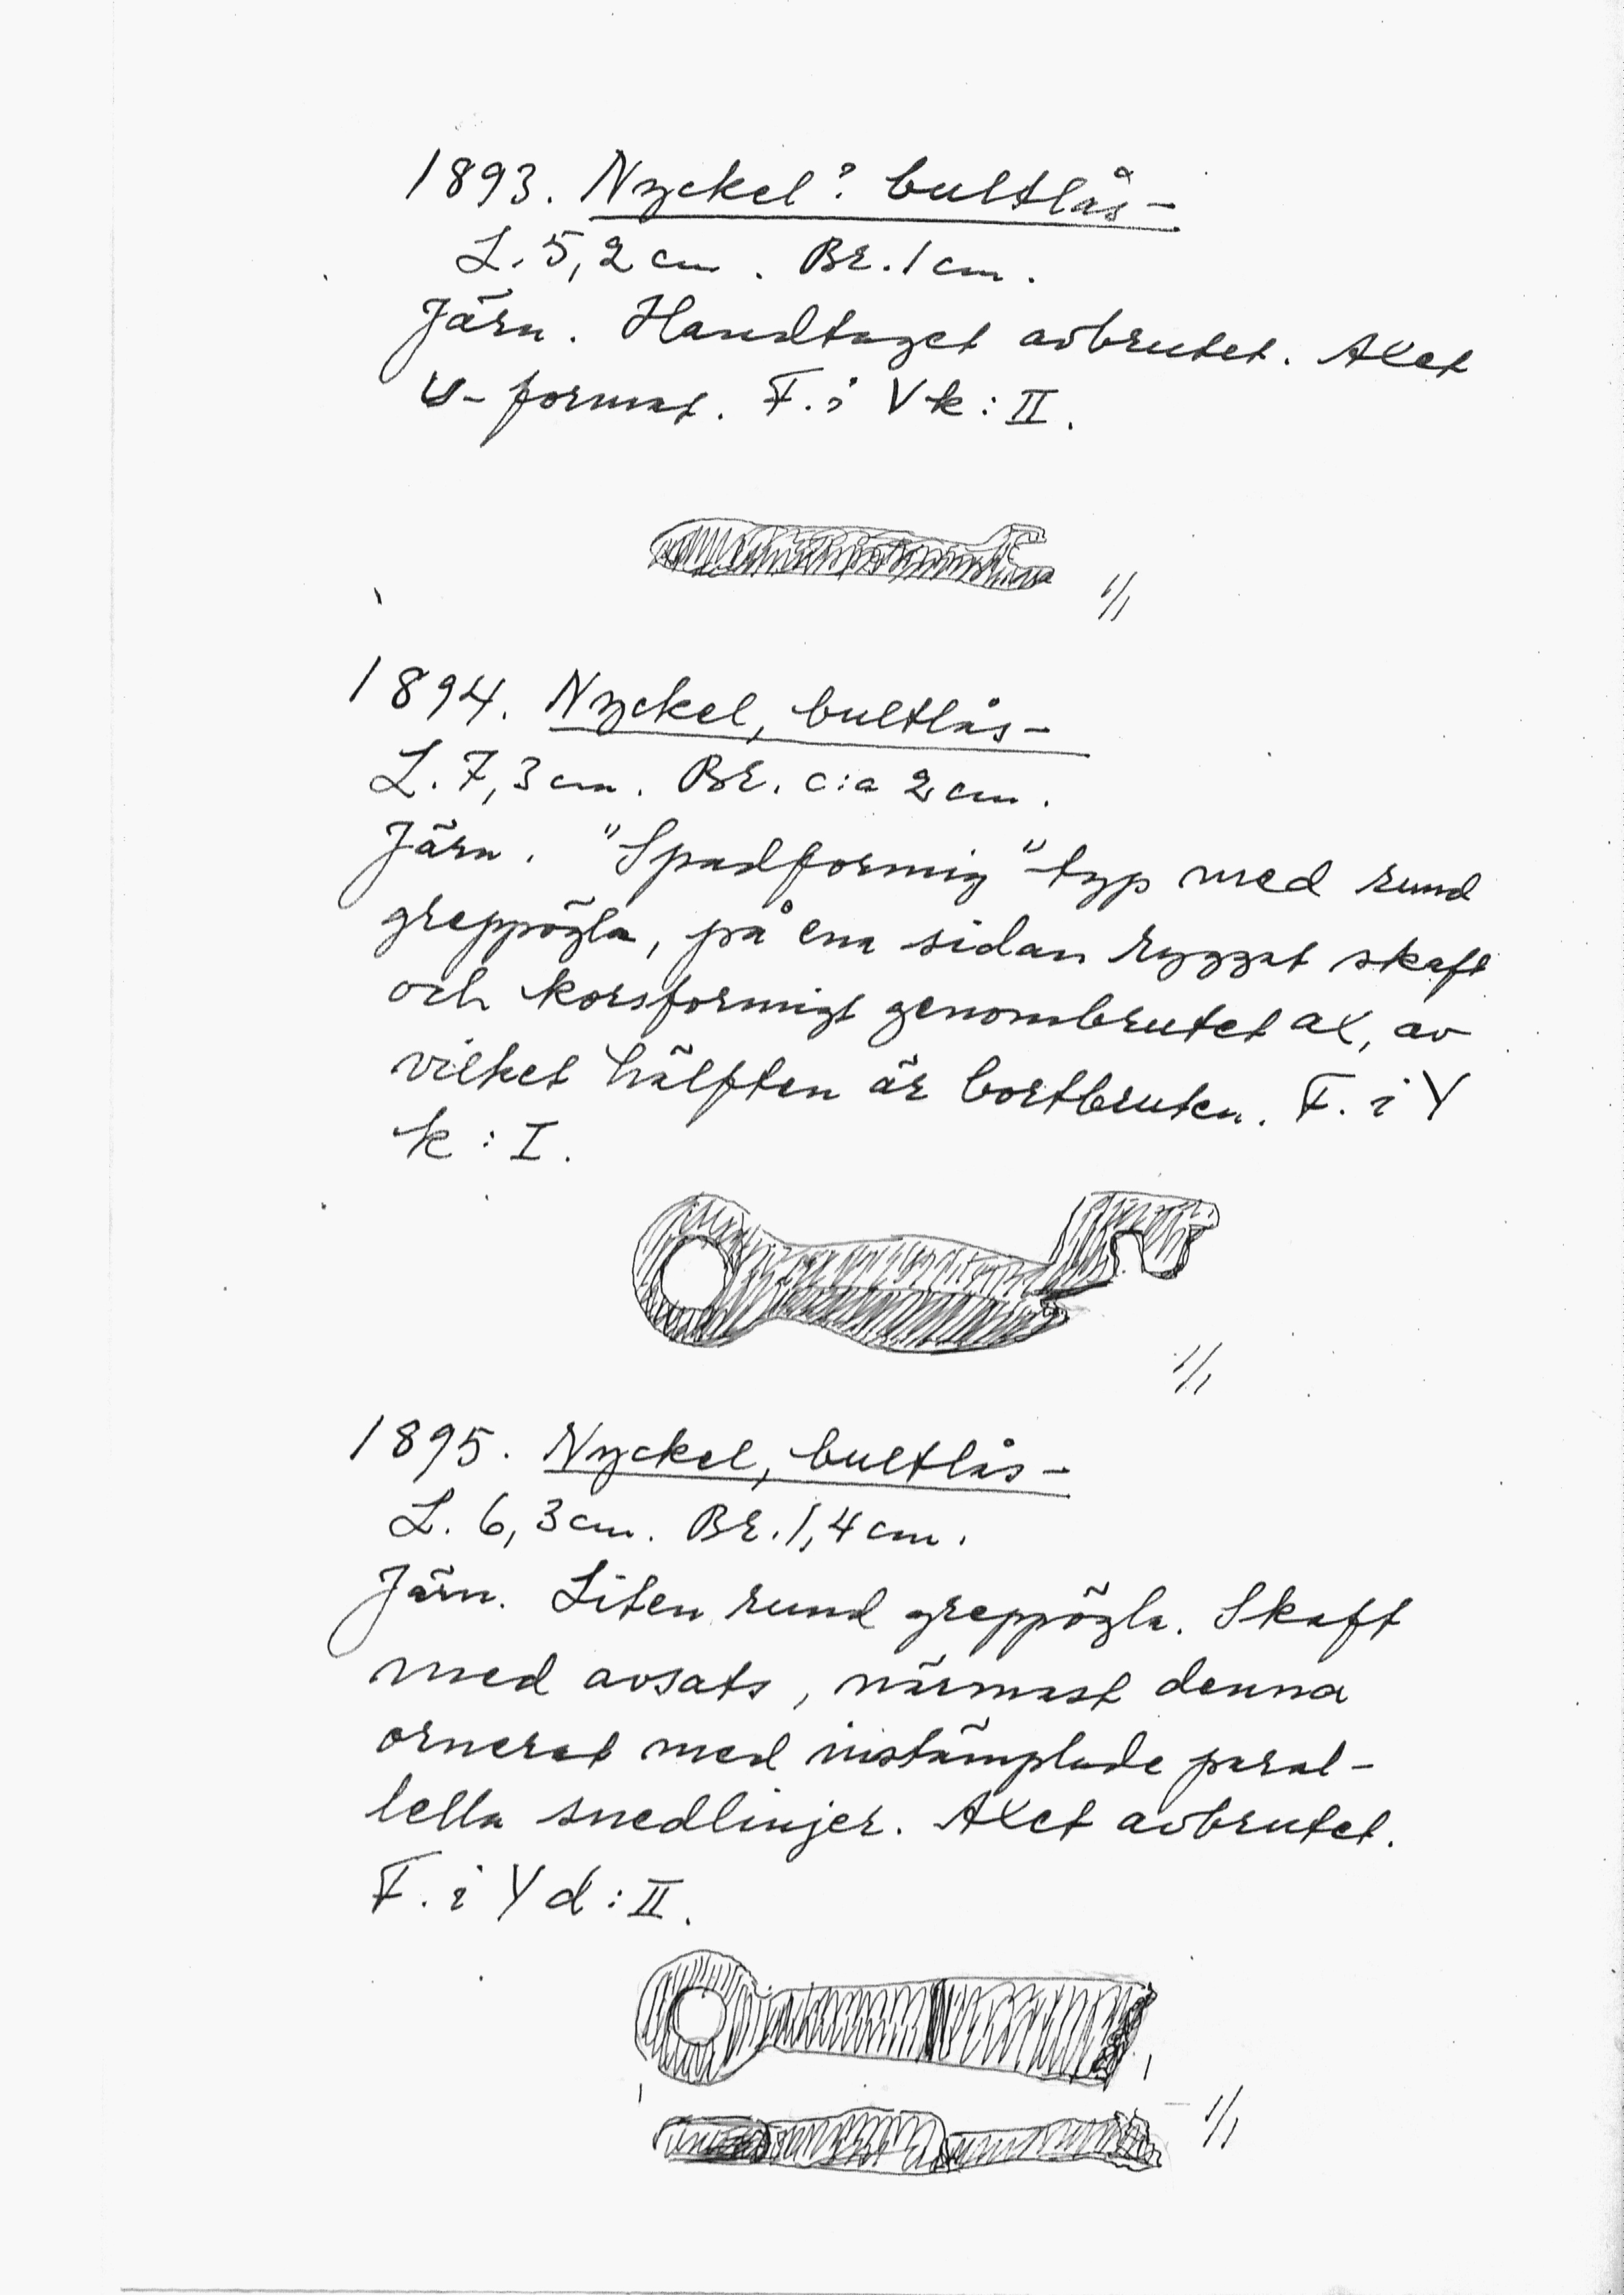 1893. Nyckel? bultlås-
L. 5,2 cm. Br. 1 cm.
Järn. Handtaget avbrutet. Axet
U-format. F. i V k : II.
1/1
1894. Nyckel, bultlås-
L. 7,3 cm. Br. c:a 2 cm.
Järn. "Spadformig" typ med rund
greppögla, på ena sidan ryggat skaft
och korsformigt genombrutet ax, av
vilket hälften är bortbruten. F. i Y
k : I.
1/1
1895. Nyckel, bultlås-
L. 6,3 cm. Br. 1,4 cm.
Järn. Liten rund greppögla. Skaft
med avsats, närmast denna
ornerat med instämplade paral-
lella snedlinjer. Axet avbrutet.
F. i Y d : II.
1/1